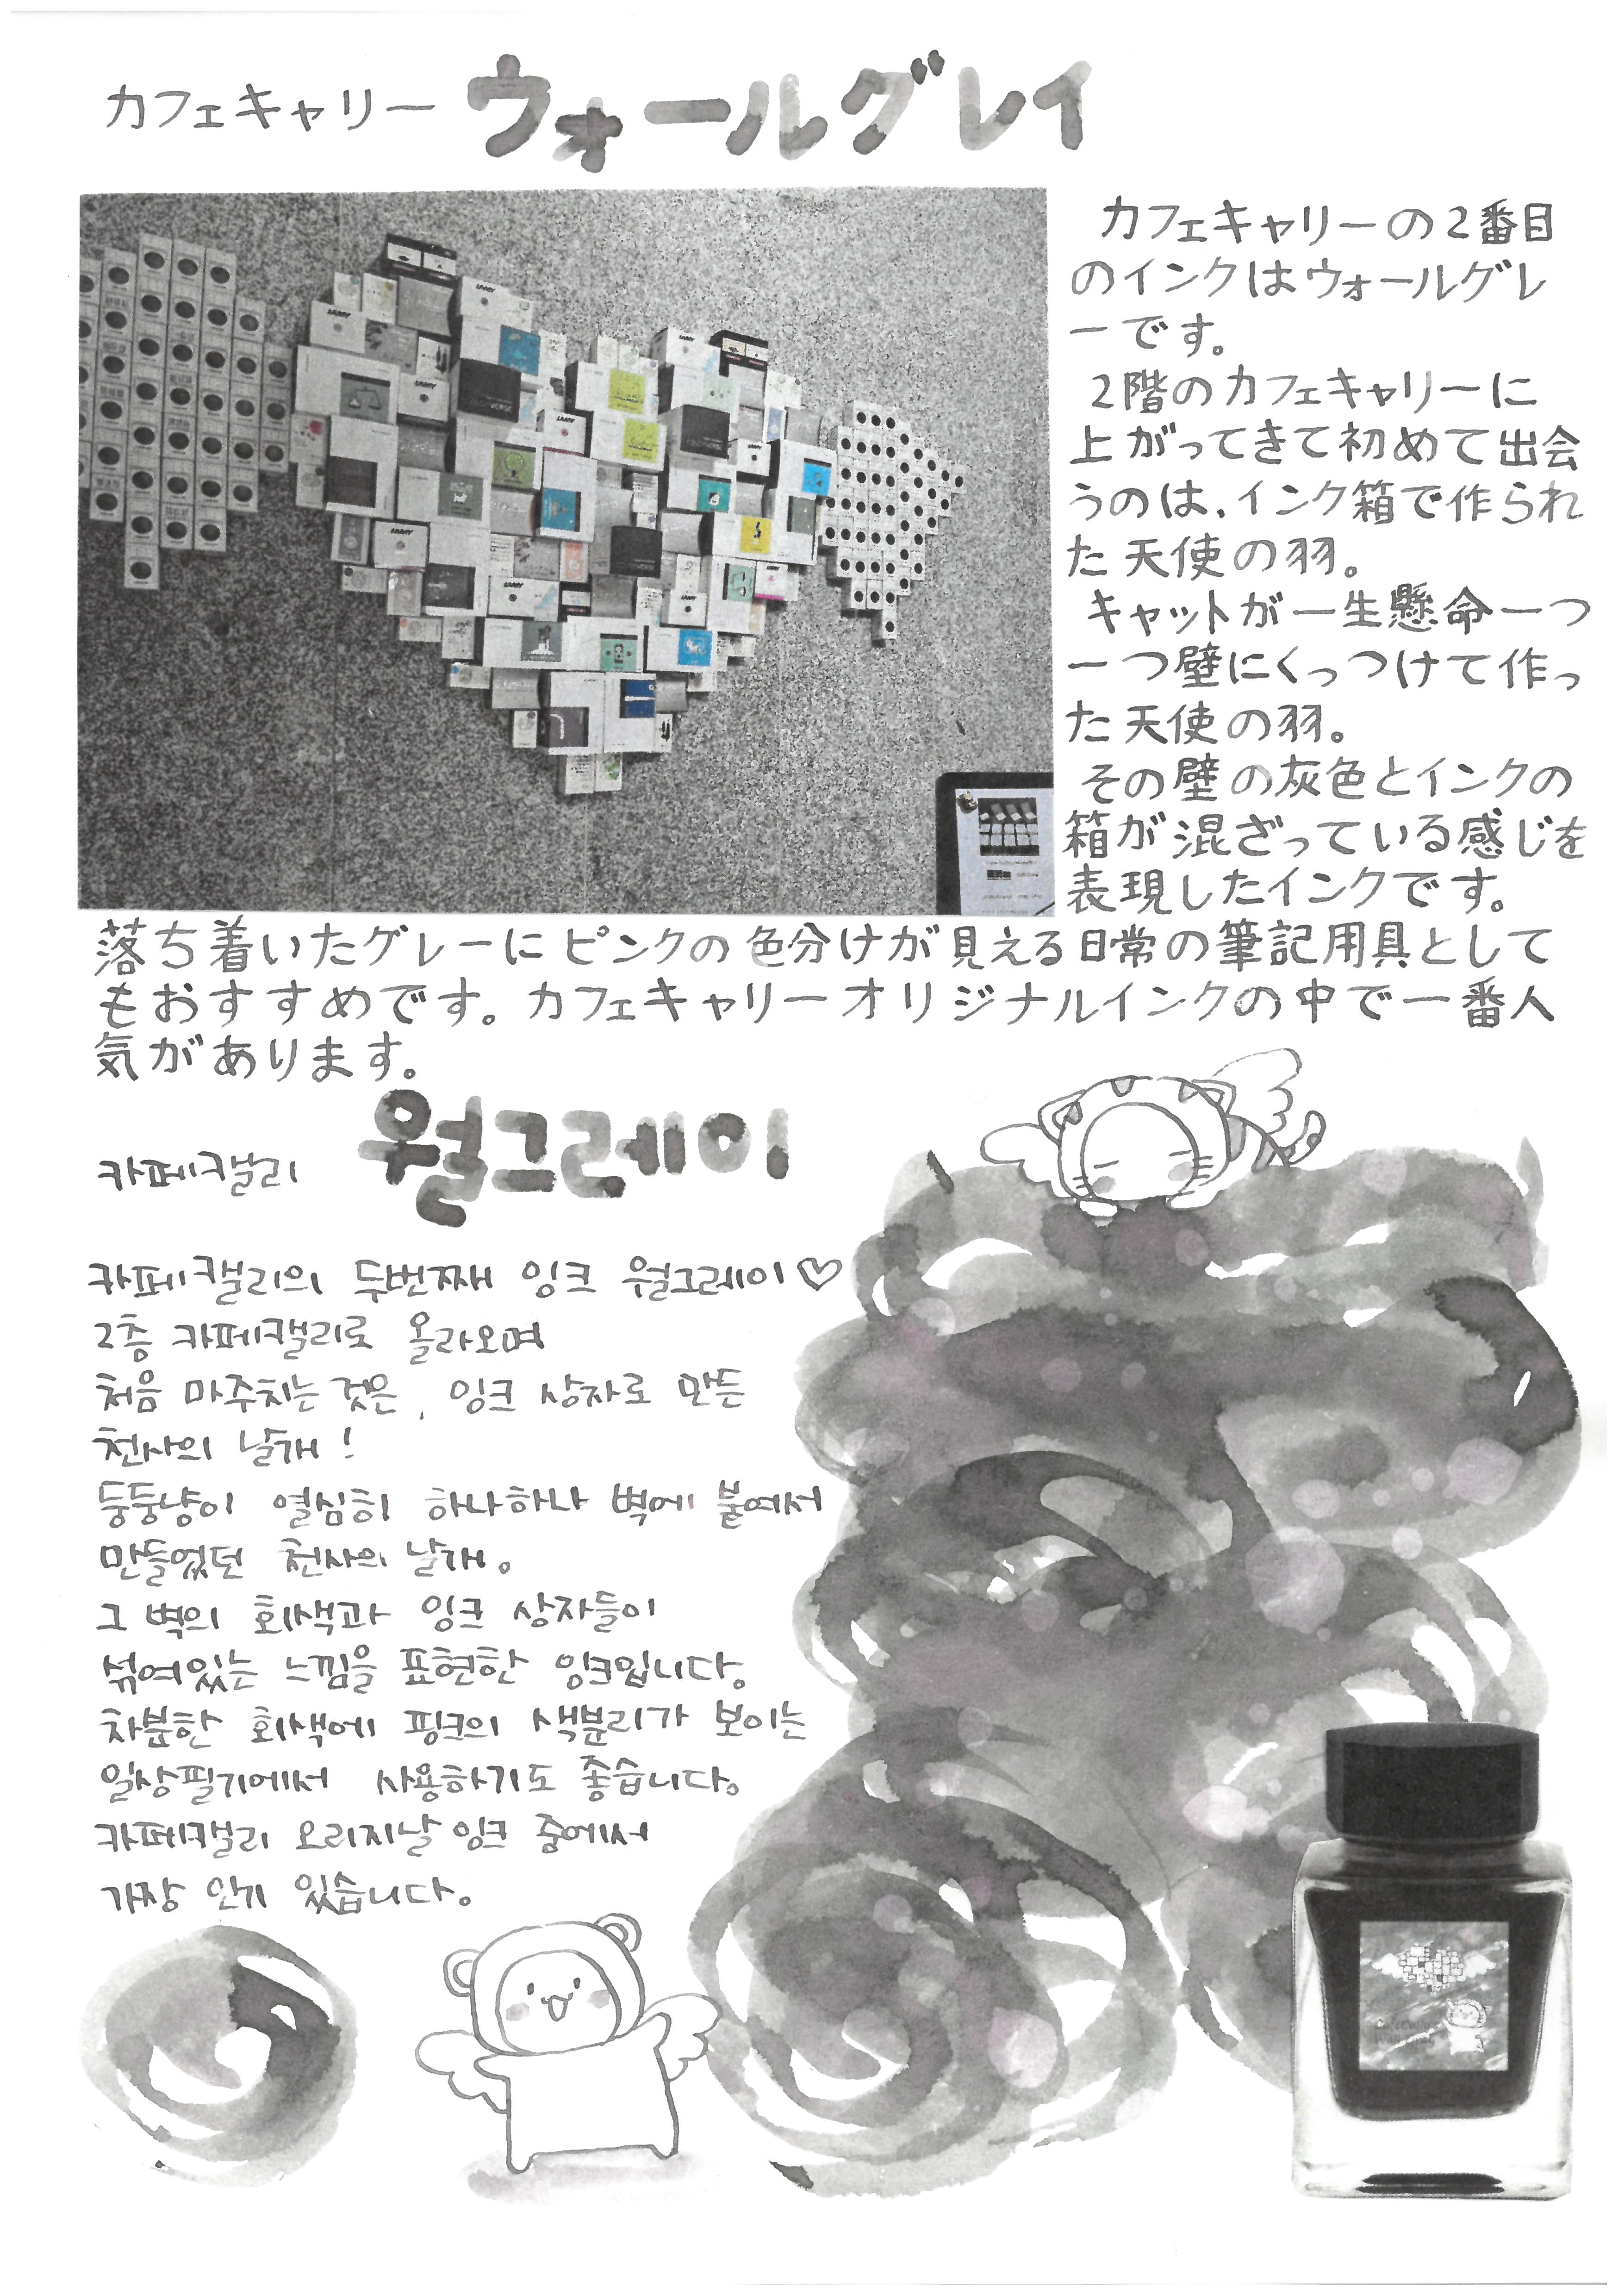 カフェキャリー ウォールグレイ
カフェキャリーの2番目
のインクはウォールグレ
ーです。
2階のカフェキャリーに
上がってきて初めて出会
うのは、インク箱で作られ
た天使の羽。
キャットが一生懸命一つ
一つ壁にくっつけて作っ
た天使の羽。
その壁の灰色とインクの
箱が混ざっている感じを
表現したインクです。
落ち着いたグレーにピンクの色分けが見える日常の筆記用具として
もおすすめです。カフェキャリーオリジナルインクの中で一番人
気があります。
카페캘리 월그레이
카페캘리의 두번째 잉크 월그레이♡
2층 카페캘리로 올라오며
처음 마주치는 것은, 잉크 상자로 만든
천사의 날개!
둥둥냥이 열심히 하나하나 벽에 붙여서
만들었던 천사의 날개。
그 벽의 회색과 잉크 상자들이
섞여있는 느낌을 표현한 잉크입니다。
차분한 회색에 핑크의 색분리가 보이는
일상필기에서 사용하기도 좋습니다。
카페캘리 오리지날 잉크 중에서
가장 인기 있습니다。
LAMY
LAMY
LAMY
LAMY
LAMY
LAMY